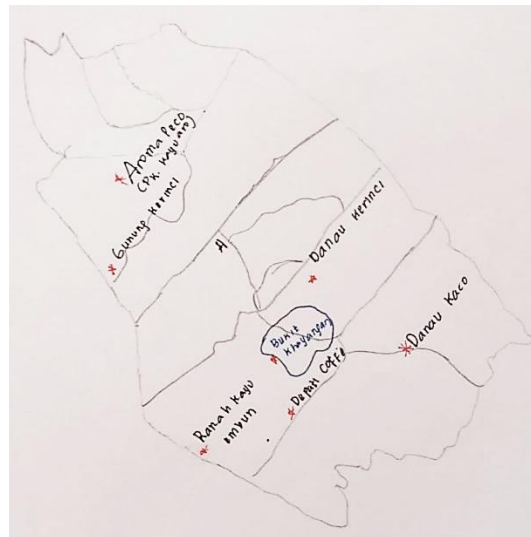 Aroma Peco
(Pk. Kayu aro)
Gunung Kerinci
A
Danau Kerinci
Bukit
Khayangan
Danau Kaco
Depati Coffe
Ranah Kayu
embun